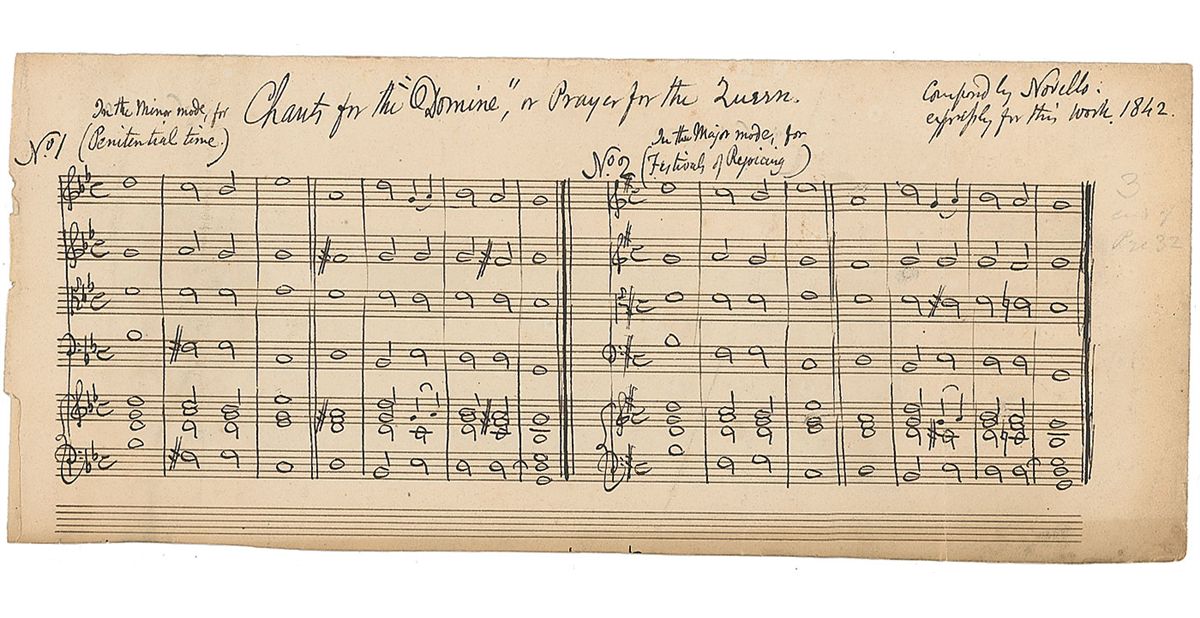 Chants for the "Domine", or Prayer for the Queen.
Composed by Novello:
expressly for this work. 1842.
No. 1
In the Minor mode, for
(Penitential time.)
No. 2
In the Major mode, for
(Festivals of Rejoicing)
3
end of
32